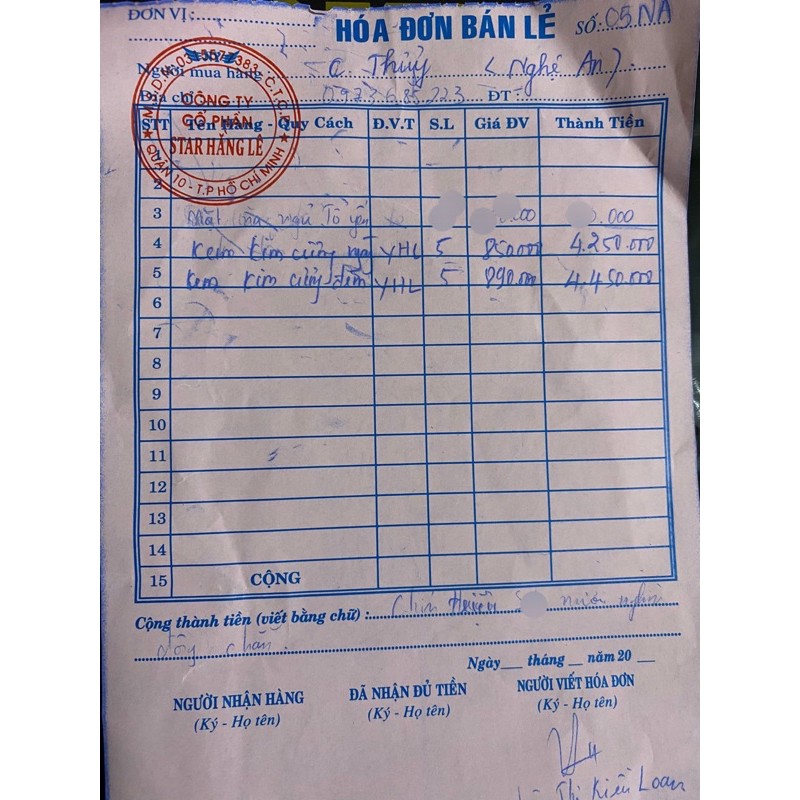 ĐƠN VỊ :
HÓA ĐƠN BÁN LẺ
SỐ: 05.NA
Người mua hàng C Thủy (Nghệ An).
Địa chỉ 0973685223 ĐT :
CÔNG TY
CỔ PHẦN
STAR HẰNG LÊ
QUẬN 10 - T.P HỒ CHÍ MINH
STT Tên Hàng - Quy Cách Đ.V.T S.L Giá ĐV Thành Tiền
1
2
3 Mặt nạ ngủ Tổ yến .000 .000
4 Kem kim cừng YHL 5 850.000 4.250.000
5 Kem kim cừng đêm YHL 5 890.000 4.450.000
6
7
8
9
10
11
12
13
14
15 CỘNG
Cộng thành tiền (viết bằng chữ) : Chín mươi
chẵn.
Ngày tháng năm 20
NGƯỜI NHẬN HÀNG ĐÃ NHẬN ĐỦ TIỀN NGƯỜI VIẾT HÓA ĐƠN
(Ký - Họ tên) (Ký - Họ tên) (Ký - Họ tên)
Thị Kiều Loan